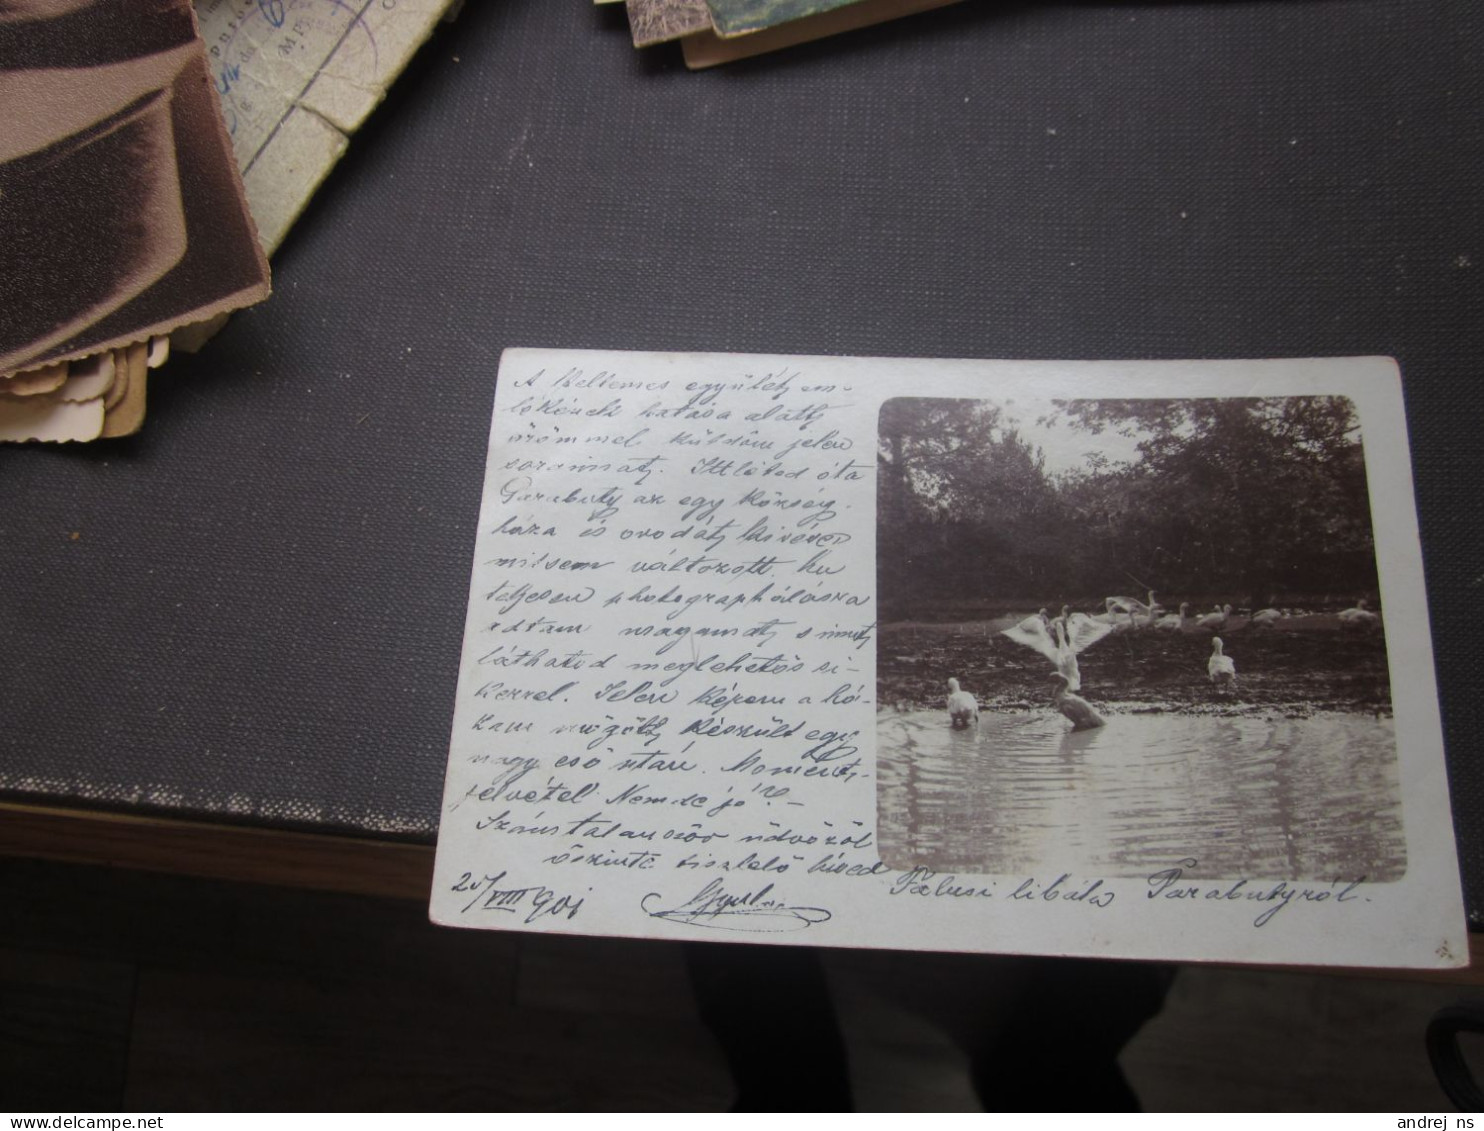 A kellemes együttlét em-
lékének hatása alatt
örömmel küldöm jelen
soraimat. Ittléted óta
Parabuty az egy község-
háza és ovodát kivéve
mitsem változott.
teljesen photographálásra
adtam magamat, s mint
láthatod meglehetős si-
kerrel. Jelen képem a há-
zam mögött készült egy
nagy eső után. Moment-
felvétel. Nemde jó? -
Számtalanszor üdvözöl
őszinte tisztelő híved
25/VIII 901
Falusi libák Parabutyról.
andrej_ns